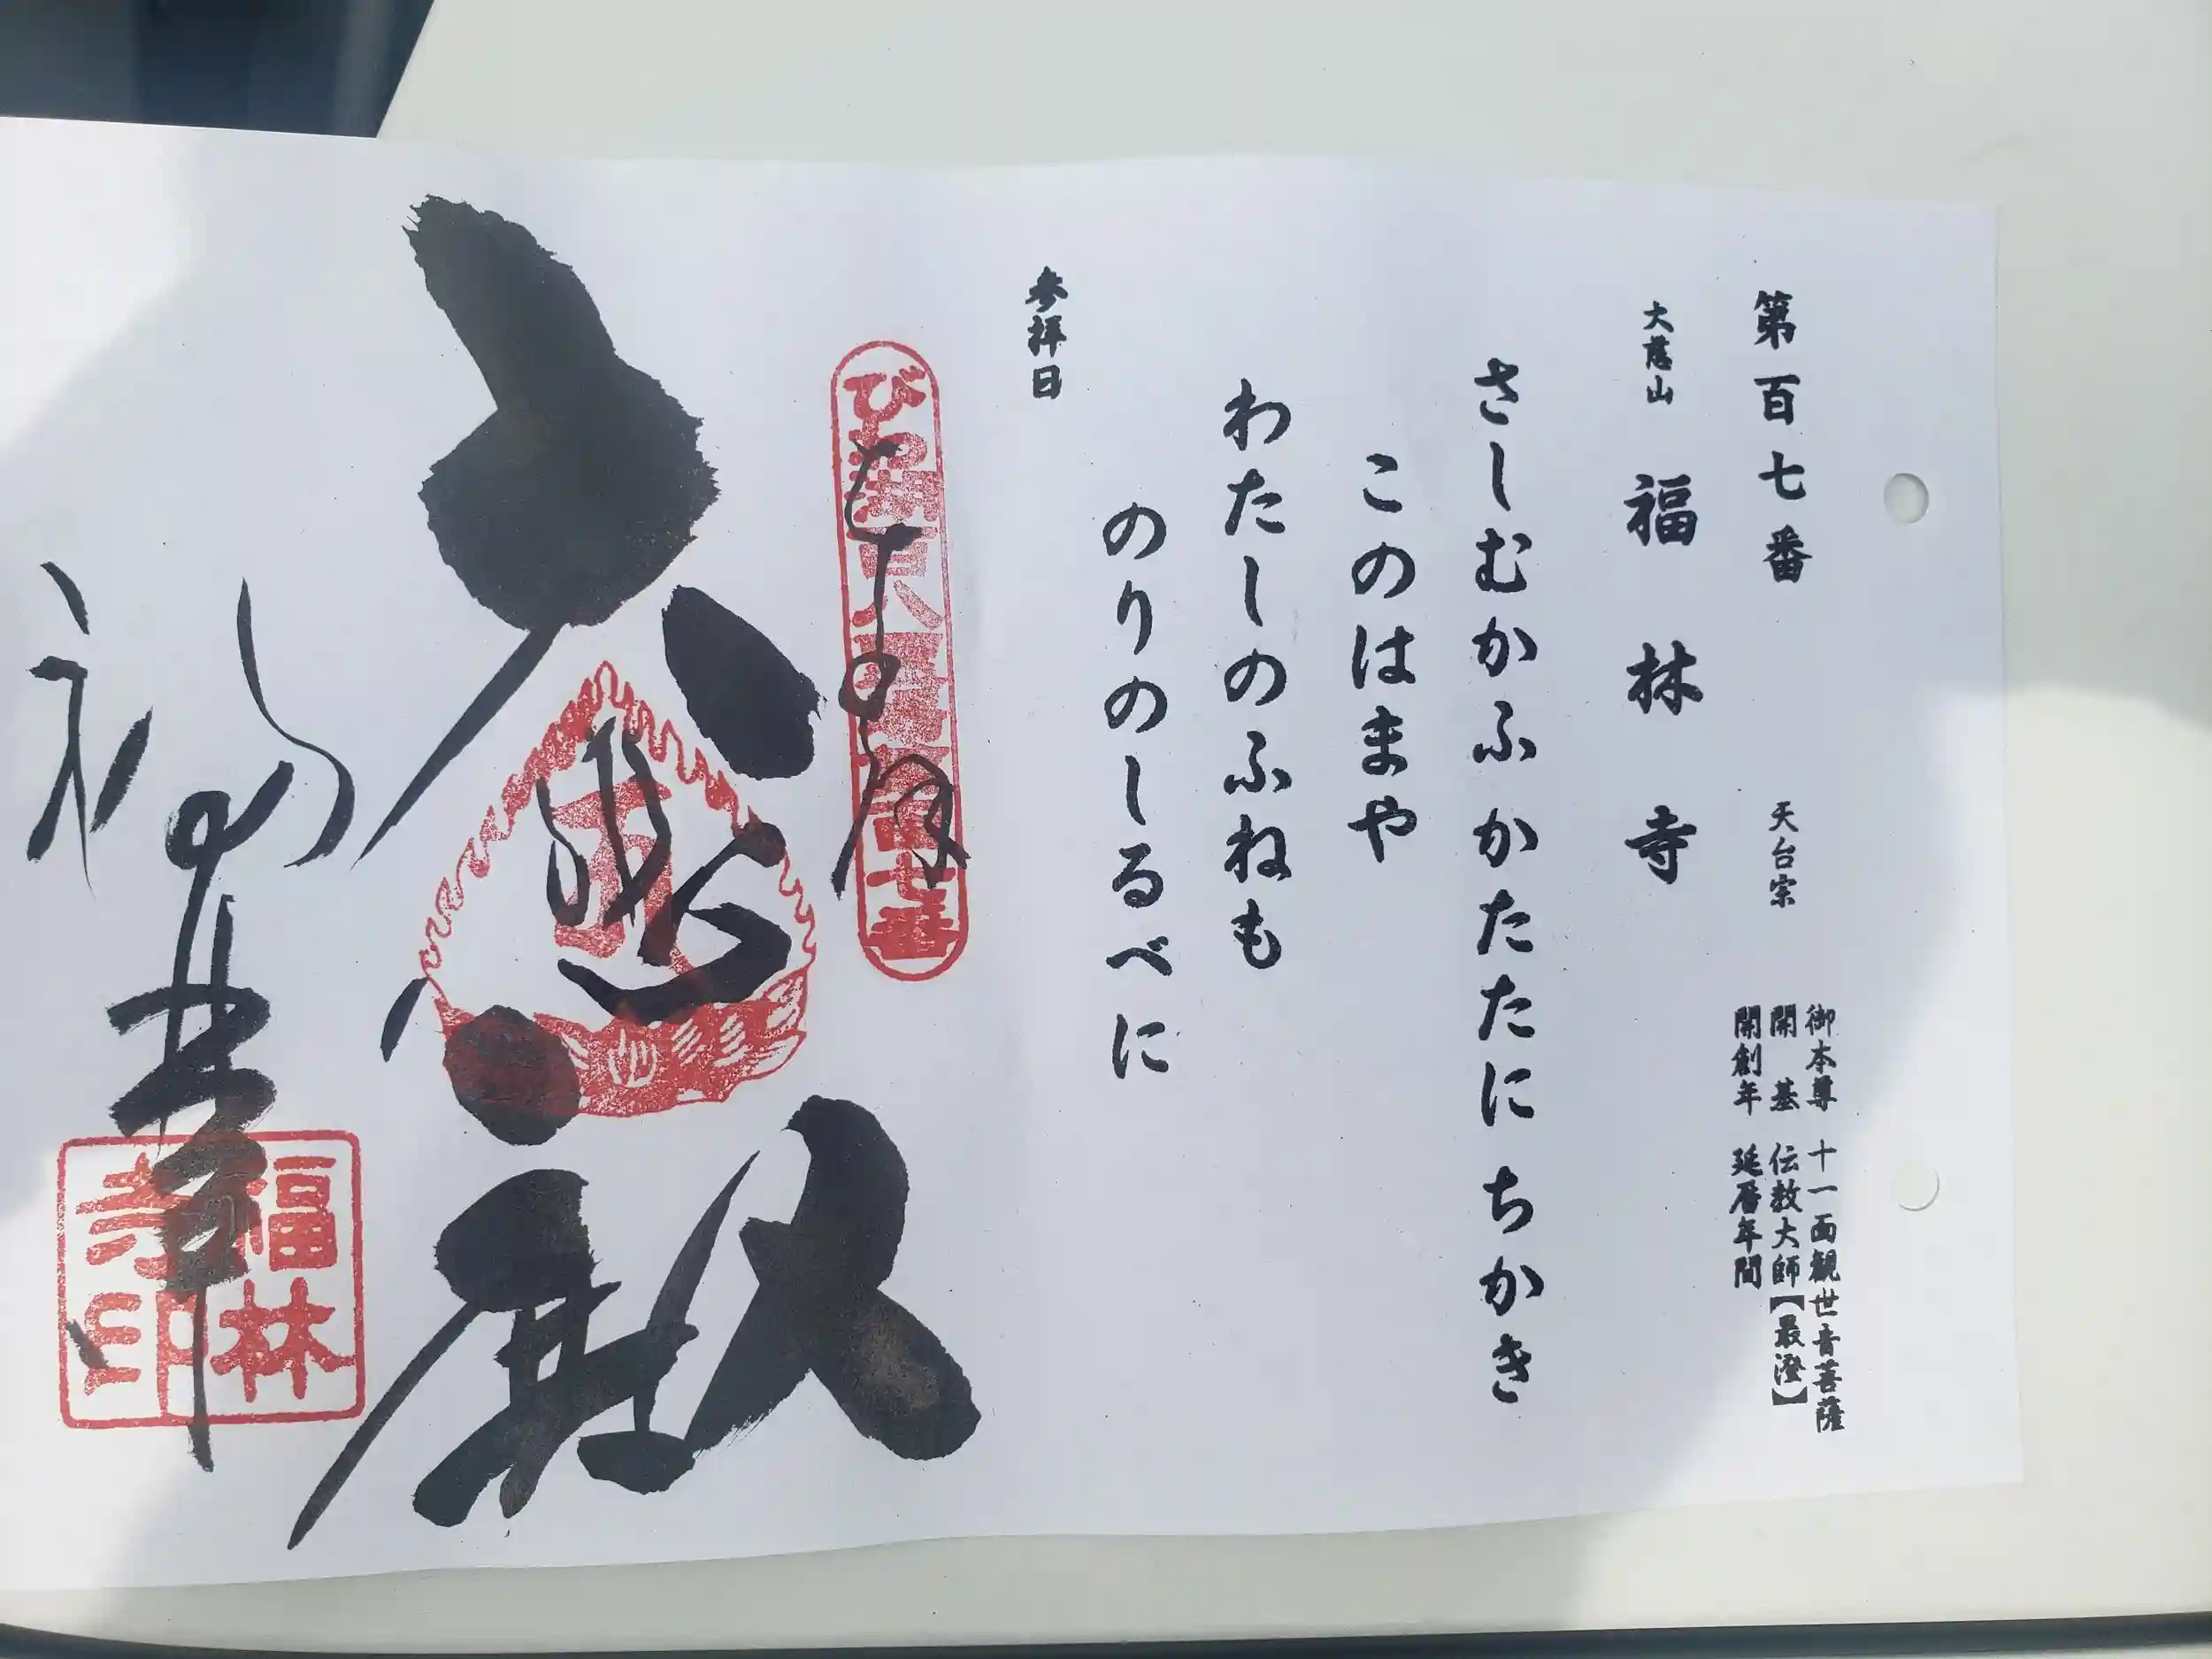 第百七番 天台宗
御本尊 十一面観世音菩薩
開基 伝教大師【最澄】
開創年 延暦年間
大慈山 福林寺
さしむかふ かたたに ちかき
このはまや
わたしのふねも
のりのしるべに
参拝日
大悲殿
福林寺
福林
寺印